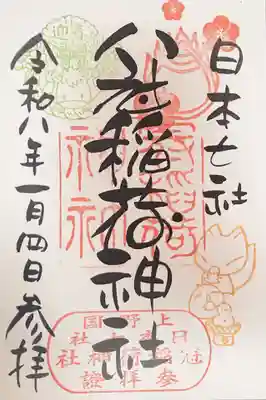 日本七社
冠稲荷神社
令和八年一月四日参拝
上野国
日本七社
冠稲荷神社
参拝證